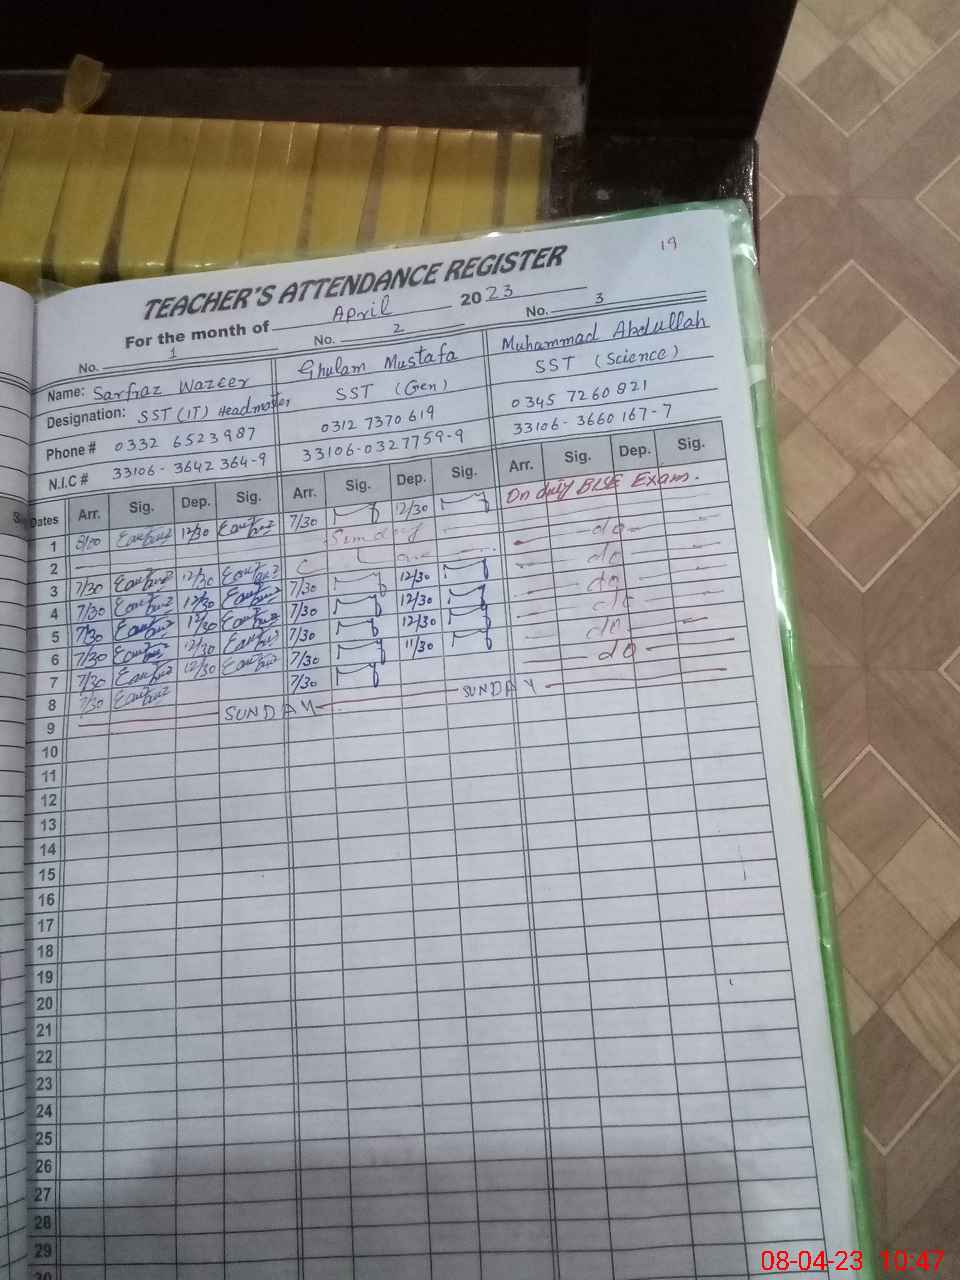 19
TEACHER'S ATTENDANCE REGISTER
For the month of April 2023
No. 1 No. 2 No. 3
Name: Sarfraz Wazeer Ghulam Mustafa Muhammad Abdullah
Designation: SST (IT) Headmaster SST (Gen) SST (Science)
Phone # 0332 6523987 0312 7370619 0345 7260821
N.I.C # 33106-3642364-9 33106-0327759-9 33106-3660167-7
Dates Arr. Sig. Dep. Sig. Arr. Sig. Dep. Sig. Arr. Sig. Dep. Sig.
1 8/00 12/30 7/30 12/30 On duty BISE Exam.
2 Sunday do
3 7/30 12/30 Leave do
4 7/30 12/30 7/30 12/30 do
5 7/30 12/30 7/30 12/30 do
6 7/30 12/30 7/30 12/30 do
7 7/30 12/30 7/30 11/30 do
8 7/30 7/30
9 SUNDAY SUNDAY
10
11
12
13
14
15
16
17
18
19
20
21
22
23
24
25
26
27
28
29
30
08-04-23 10:47